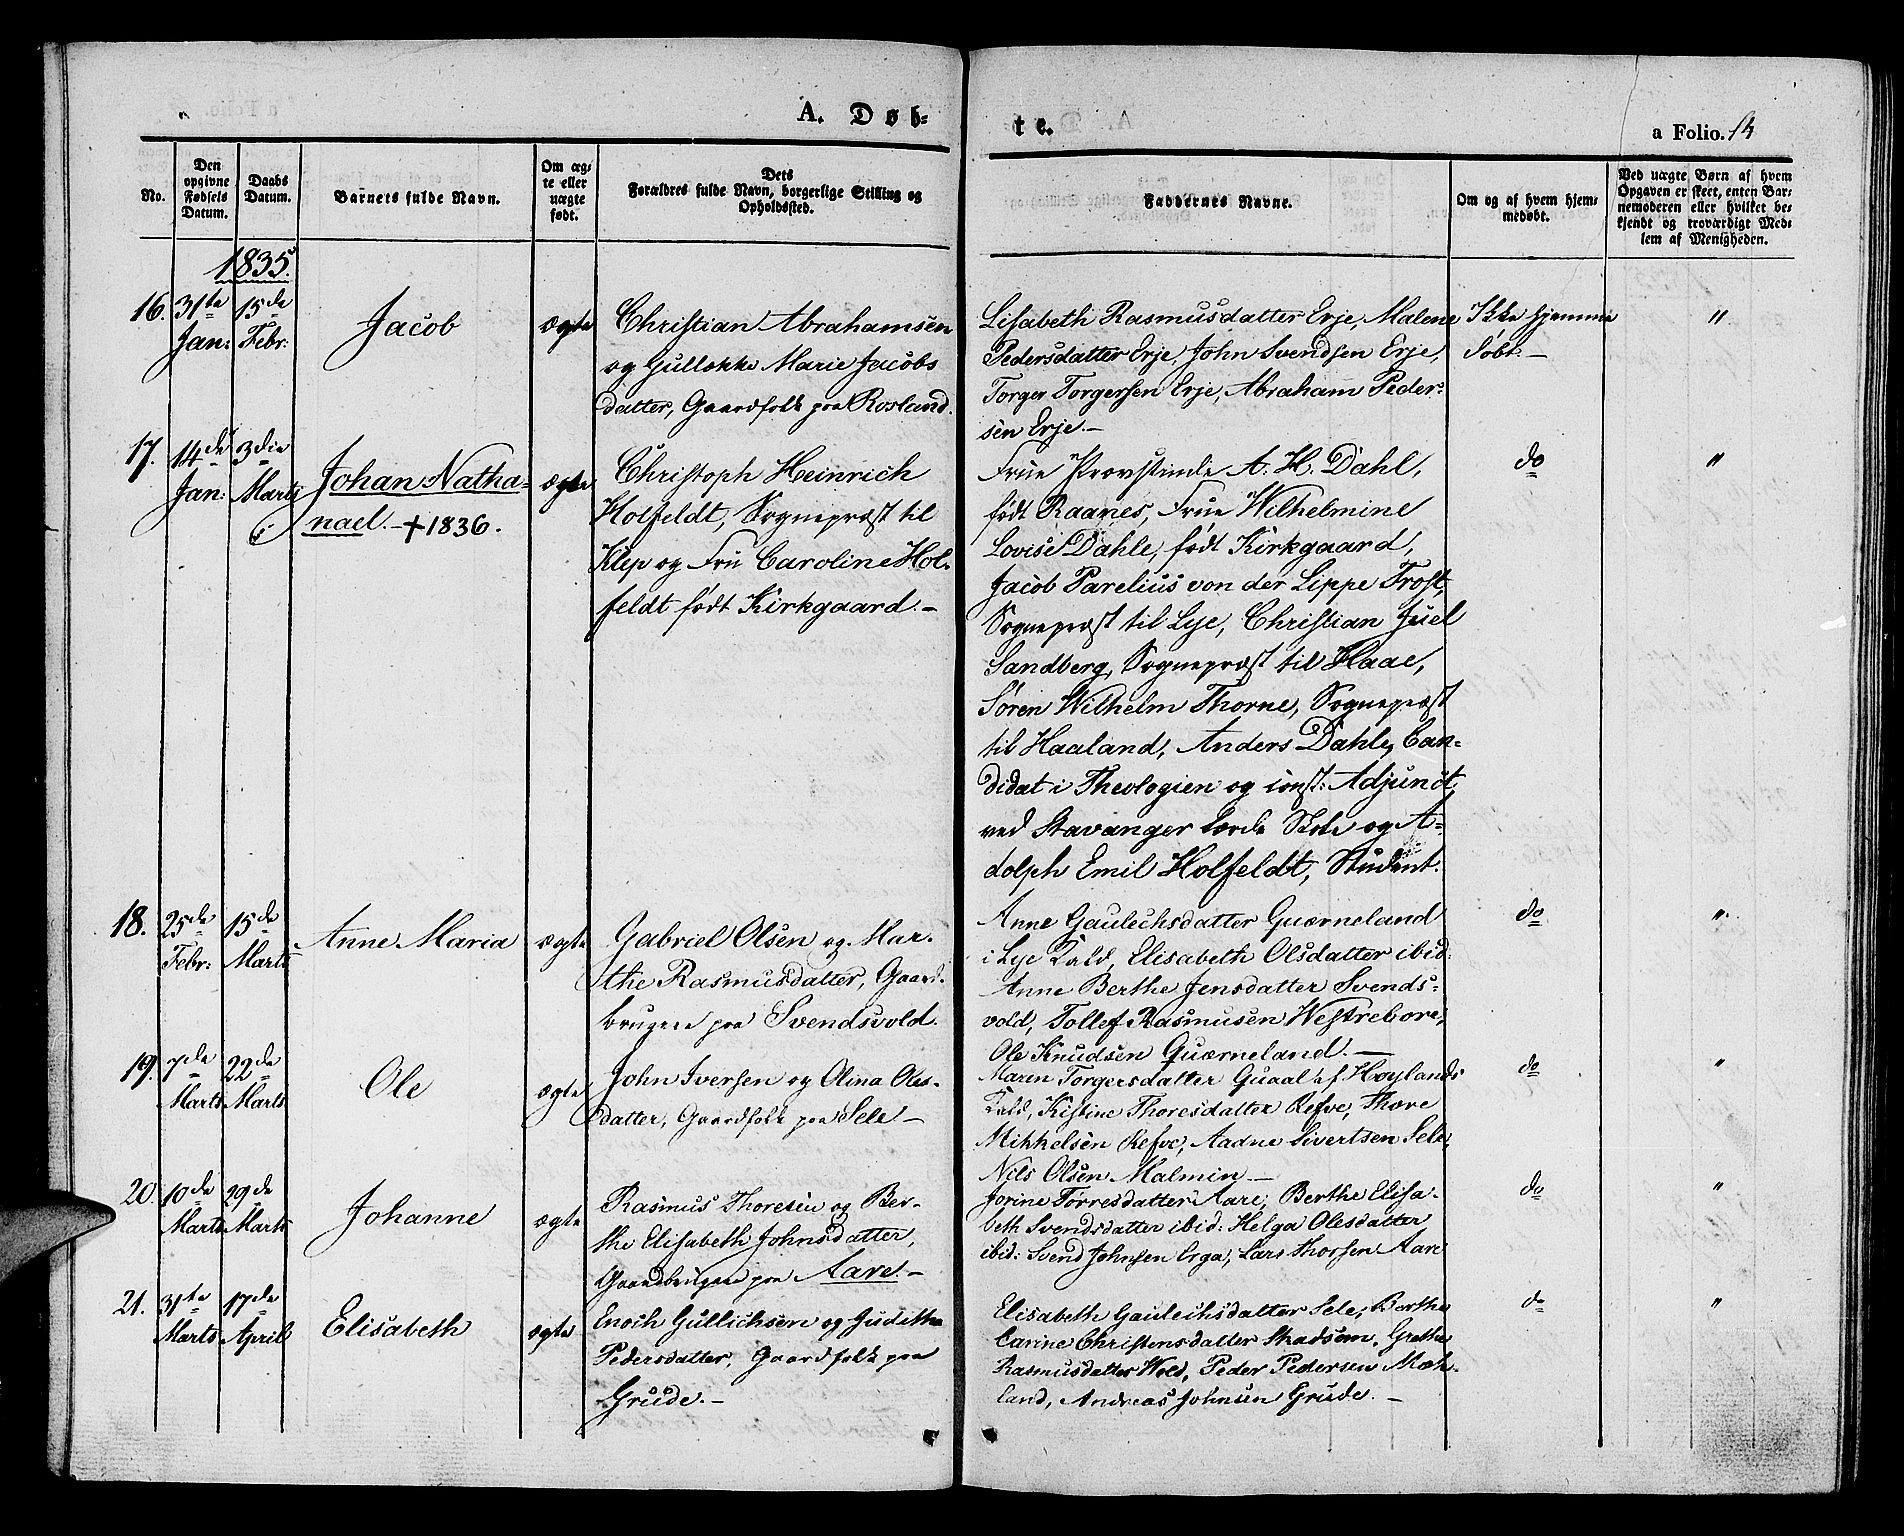 A. Døb-
te.
a Folio. 14
No.
Den opgivne Fødsels Datum.
Daabs Datum.
Barnets fulde Navn.
Om ægte eller uægte født.
Dets Forældres fulde Navn, borgerlige Stilling og Opholdssted.
Faddernes Navne.
Om og af hvem hjemmedøbt.
Ved uægte Børn af hvem Opgaven er skeet, enten Barnemoderen eller hvilket bekjendt og troværdigt Medlem af Menigheden.
1835.
16.
31te Jan:
15de Febr:
Jacob
ægte
Christian Abrahamsen
og Gullekke Marie Jacobs
datter, Gaardfolk paa Rosland.
Lisabeth Rasmusdatter Erje, Malene
Pedersdatter Erje, John Svendsen Erje,
Torger Torgersen Erje, Abraham Peder-
sen Erje.-
Ikke hjemme
døbt.-
"
17.
14de Jan:
3die Marts
Johan Natha-
nael. - † 1836.
ægte
Christoph Heinrich
Holfeldt, Sognepræst til
Klep og Fru Caroline Hol-
feldt født Kirkgaard.-
Frue Provstinde A. H. Dahl,
født Raanes, Frue Wilhelmine
Lovise Dahle, født Kirkgaard,
Jacob Parelius von der Lippe Frost,
Sognepræst til Lye, Christian Juel
Sandberg, Sognepræst til Haae,
Søren Wilhelm Thorne, Sognepræst
til Haaland, Anders Dahle, Can-
didat i Theologien og const: Adjunct
ved Stavanger lærde Skole og A-
dolph Emil Holfeldt, Student.
do
"
18.
25de Febr:
15de Marts
Anne Maria
ægte
Gabriel Olsen og Mar-
the Rasmusdatter, Gaard-
brugere paa Svendsvold.
Anne Gaulechsdatter Quærneland
i Lye Kald, Elisabeth Olsdatter ibid:
Anne Berthe Jensdatter Svends-
vold, Tollef Rasmusen Westrebore,
Ole Knudsen Quærneland.-
do
"
19.
7de Marts
22de Marts
Ole
ægte
John Iversen og Olina Oles-
datter, Gaardfolk paa Sele -
Maren Torgersdatter Quaal af Høylands
Kald, Kistine Thoresdatter Refve, Thore
Mikkelsen Refve, Aadne Sivertsen Sele,
Nils Olsen Malmin -
do
"
20.
10de Marts
29de Marts
Johanne
ægte
Rasmus Thoresen og Ber-
the Elisabeth Johnsdatter,
Gaardbrugere paa Aare.-
Jorine Torresdatter Aare, Berthe Elisa-
beth Svendsdatter ibid: Helga Olesdatter
ibid: Svend Johnsen Erga, Lars Thorsen Aare
do
"
21.
31te Marts
17de April
Elisabeth
ægte
Enoch Gullichsen og Juditha
Pedersdatter, Gaardfolk paa
Grude.-
Elisabeth Gaulechsdatter Sele, Berthe
Carine Christensdatter Skadsem, Grethe
Rasmusdatter Wold, Peder Pedersen Mæh-
land, Andreas Johnsen Grude. -
do
"